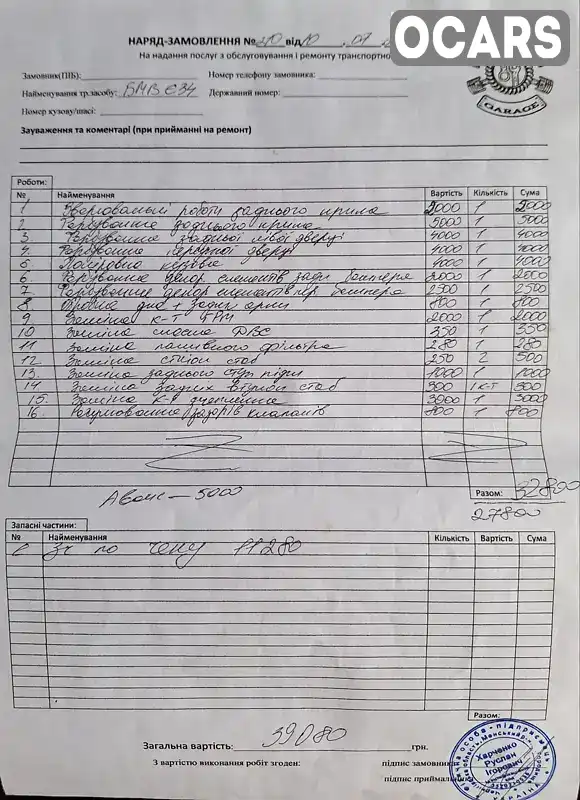 OCARS
НАРЯД-ЗАМОВЛЕННЯ № 210 від 10 . 07
На надання послуг з обслуговування і ремонту транспортно
Замовник(ПІБ):
Номер телефону замовника:
Найменування тр.засобу: БМВ е34
Державний номер:
Номер кузову/шасі:
GARAGE
Зауваження та коментарі (при прийманні на ремонт)
Роботи:
№ Найменування Вартість Кількість Сума
1 Зварювальні роботи заднього крила 2000 1 2000
2 Фарбування заднього крила 5000 1 5000
3. Фарбування задньої лівої двері 4000 1 4000
4. Фарбування передньої двері 4000 1 4000
5. Поліровка кузова 4000 1 4000
6. Фарбування декор. елементів задн бампера 2000 1 2000
7. Фарбування декор елементів пер. бампера 2500 1 2500
8. дна і задн арки 800 1 800
9 Заміна к-т ГРМ 2000 1 2000
10 Заміна масла ДВС 350 1 350
11 Заміна паливного фільтра 280 1 280
12. Заміна стійки стаб 250 2 500
13. Заміна заднього 1000 1 1000
14 Заміна задніх втулок стаб 300 1 к-т 300
15. Заміна к-т зчеплення 3000 1 3000
16. Регулювання зазорів клапанів 800 1 800
Аванс – 5000
Разом: 32800
27800
Запасні частини:
№ Найменування Кількість Вартість Сума
Зч по чеку 11280
Разом:
Загальна вартість: 39080 грн.
З вартістю виконання робіт згоден:
підпис замовника
підпис приймальника
Фізична особа - підприємець
Харченко
Руслан
Ігорович
УКРАЇНА